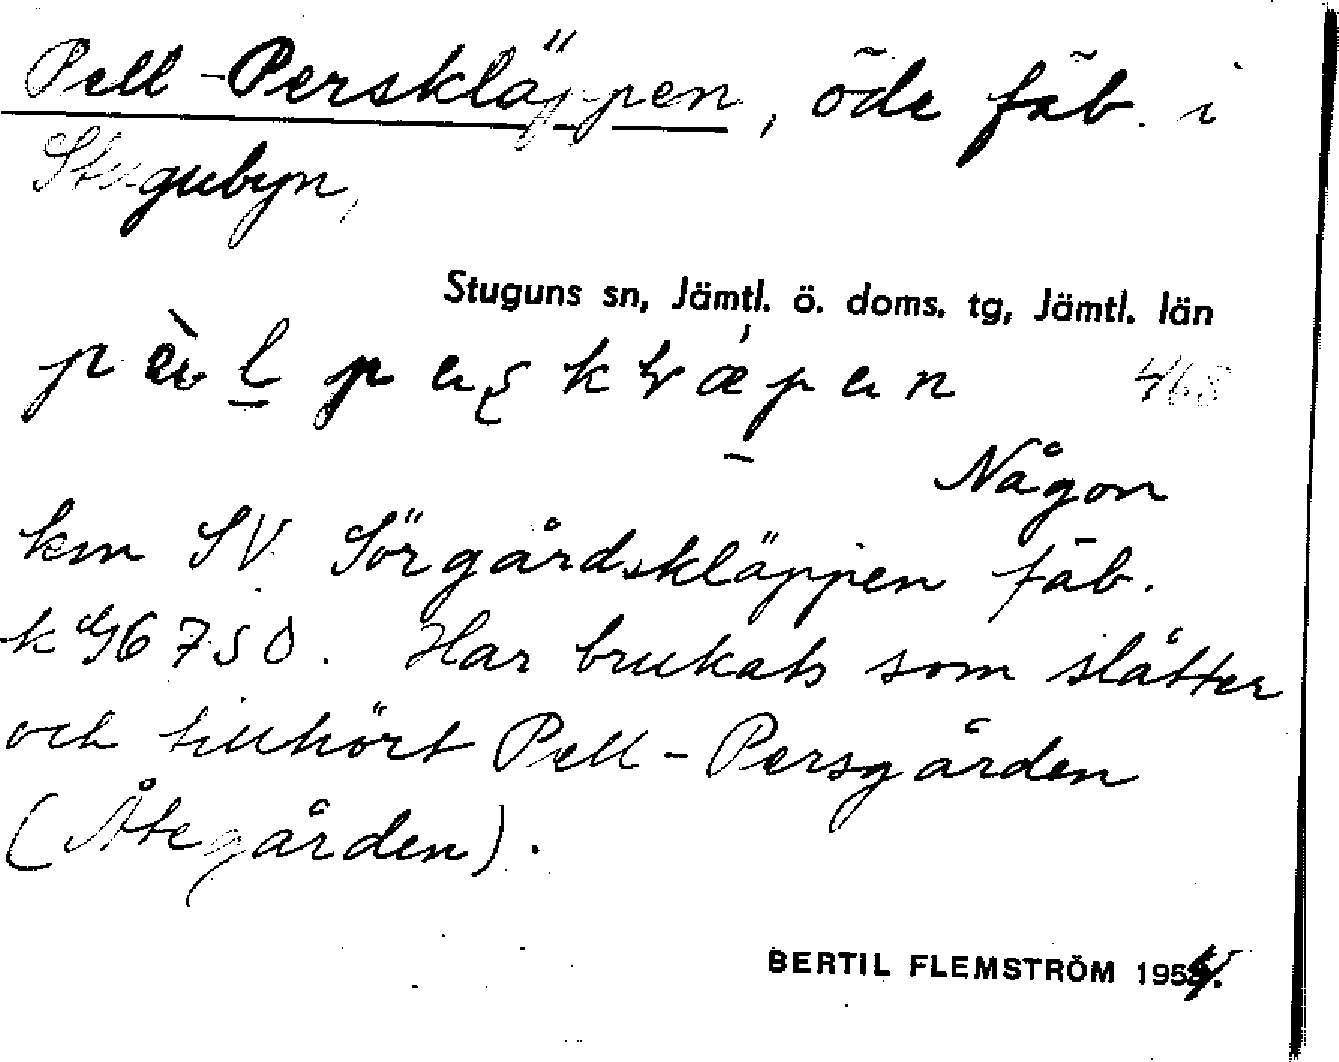 Pell-Perskläppen, öde fäb. i
Stugubyn,
Stuguns sn, Jämtl. ö. doms. tg, Jämtl. län
468
Någon
km SV Sörgårdskläppen fäb.
Har brukats som slåtter
och tillhört Pell-Persgården
(Åtegården).
BERTIL FLEMSTRÖM 1954.